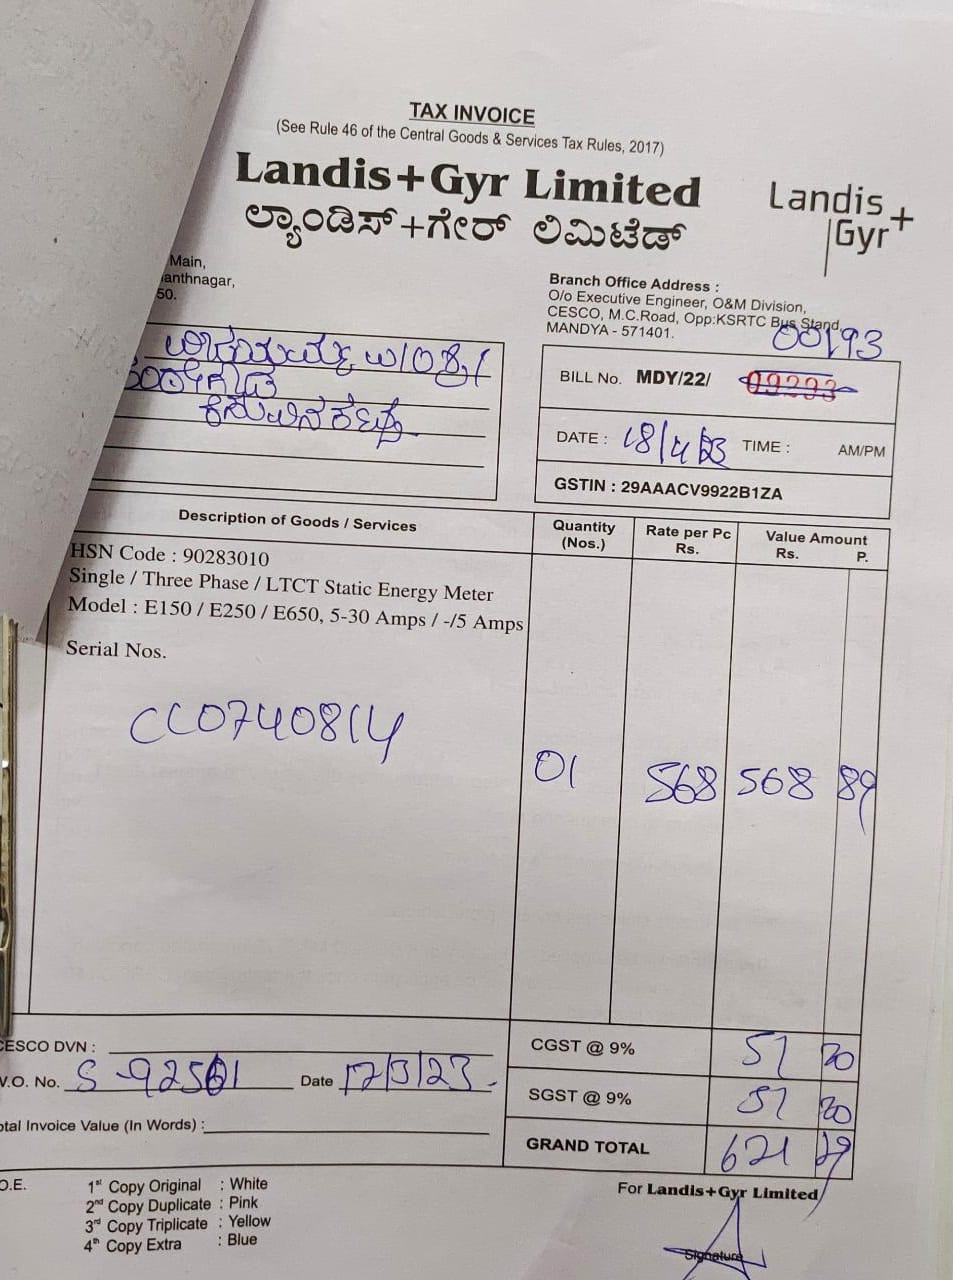 TAX INVOICE
(See Rule 46 of the Central Goods & Services Tax Rules, 2017)
Landis+Gyr Limited
ಲ್ಯಾಂಡಿಸ್+ಗೇರ್ ಲಿಮಿಟೆಡ್
Landis+
Gyr+
Main,
anthnagar,
50.
Branch Office Address :
O/o Executive Engineer, O&M Division,
CESCO, M.C.Road, Opp:KSRTC Bus Stand,
MANDYA - 571401.
00193
BILL No. MDY/22/ 09293
DATE : 18/4/23 TIME : AM/PM
GSTIN : 29AAACV9922B1ZA
Description of Goods / Services
Quantity (Nos.)
Rate per Pc Rs.
Value Amount Rs. P.
HSN Code : 90283010
Single / Three Phase / LTCT Static Energy Meter
Model : E150 / E250 / E650, 5-30 Amps / -/5 Amps
Serial Nos.
CC0740814
01 568 568 89
CESCO DVN :
CGST @ 9% 51 20
V.O. No. S-92501 Date 17/3/23
SGST @ 9% 51 20
otal Invoice Value (In Words) :
GRAND TOTAL 671 29
O.E.
1st Copy Original : White
2nd Copy Duplicate : Pink
3rd Copy Triplicate : Yellow
4th Copy Extra : Blue
For Landis+Gyr Limited
Signature